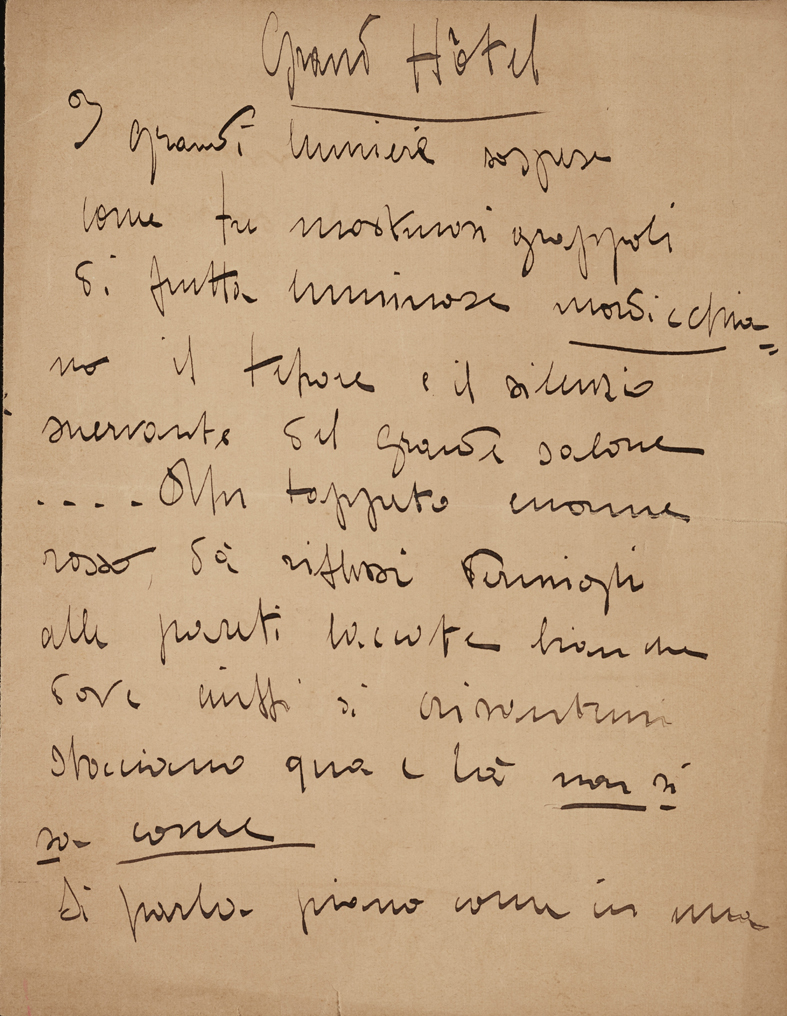 Grand Hôtel
I grandi lumiere sospese
come tre mostruosi grappoli
di frutta luminose mordicchia=
no il tepore e il silenzio
snervante del grande salone
.... tappeto enorme
rosso, dà riflessi vermigli
alle pareti laccate bianche
dove ciuffi di crisantemi
sbocciano qua e là non si
sa come
Si parla piano come in una